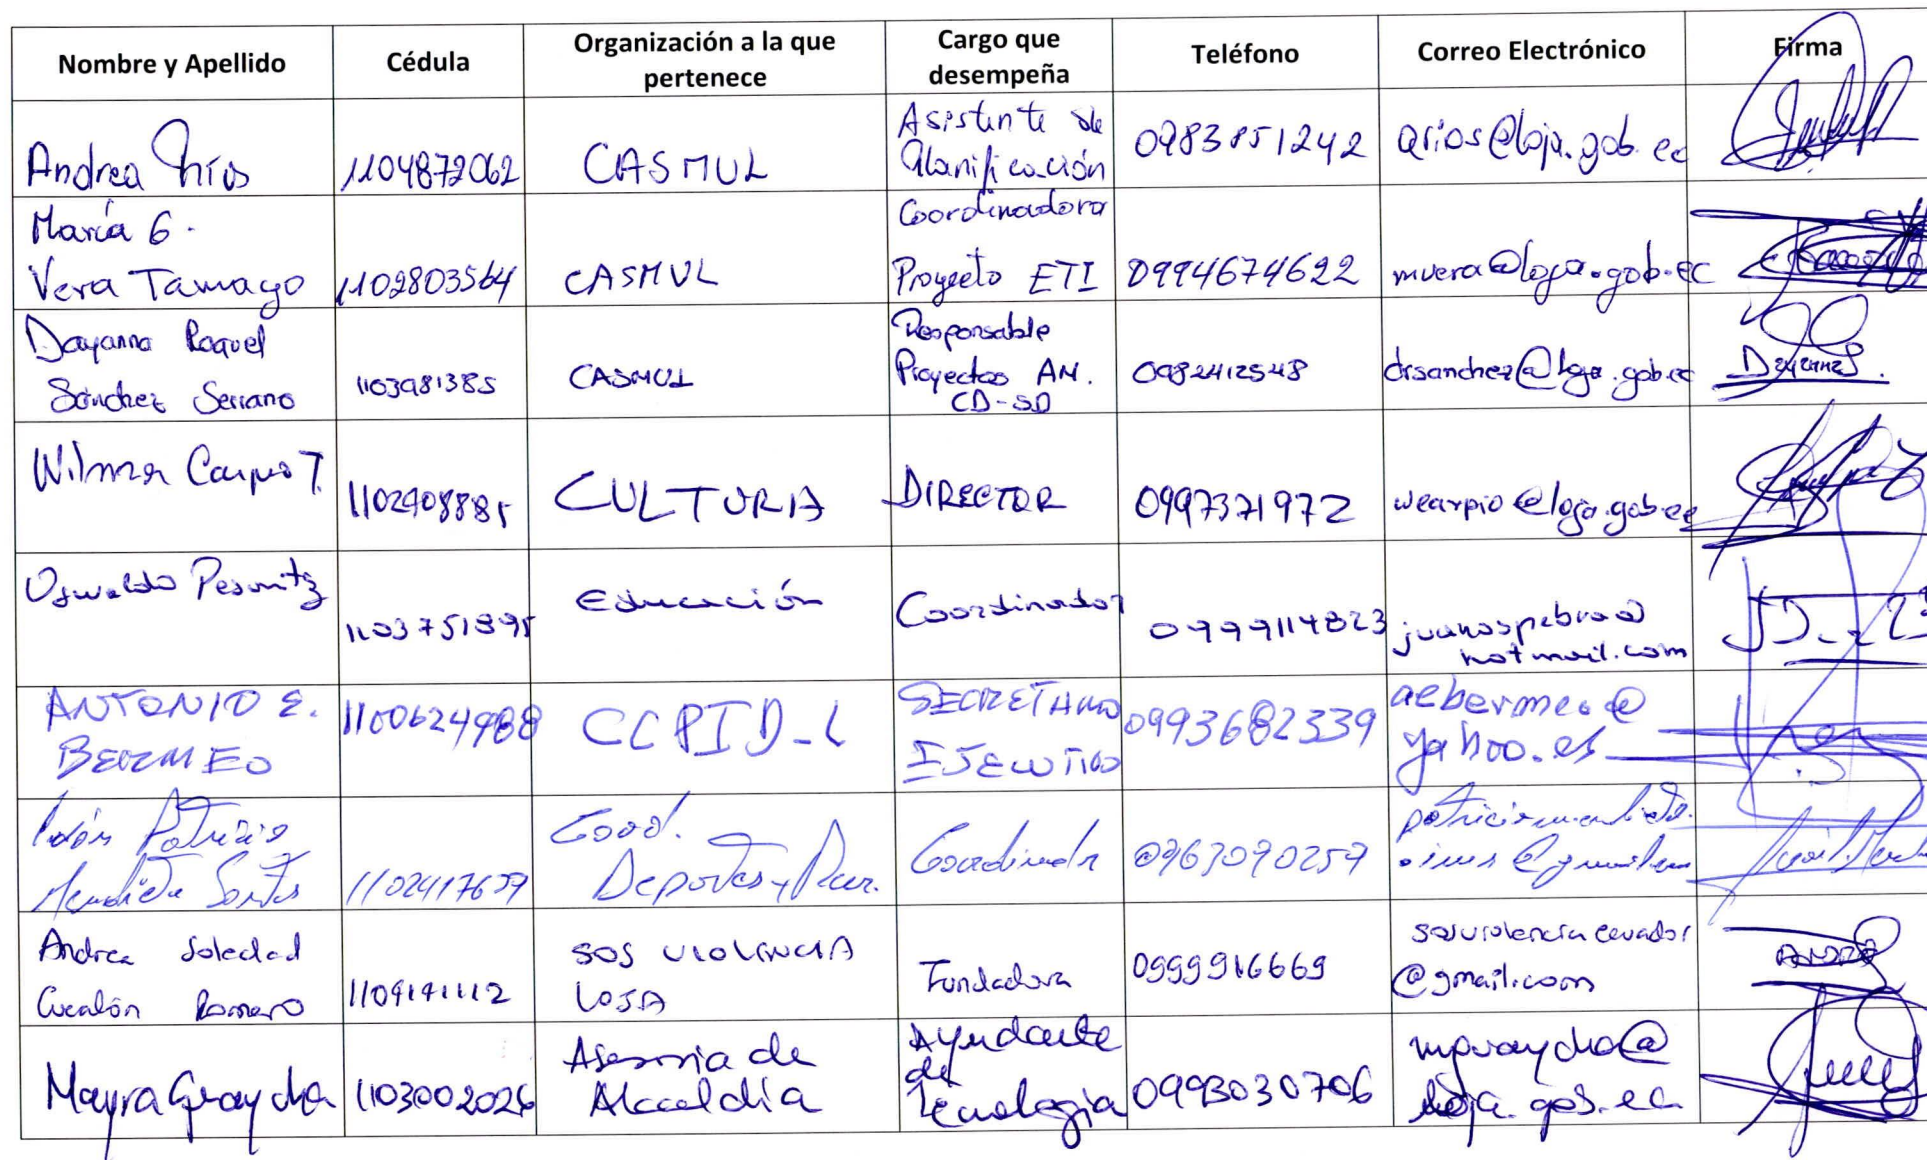 Nombre y Apellido Cédula Organización a la que pertenece Cargo que desempeña Teléfono Correo Electrónico Firma
Andrea Ríos 1104872062 CASMUL Asistente de Planificación 0983851242 arios@loja.gob.ec
María G. Vera Tamayo 1102803564 CASMUL Coordinadora Proyecto ETI 0994674622 mvera@loja.gob.ec
Dayanna Raquel Sánchez Serrano 1103981385 CASMUL Responsable Proyectos AM. CD-SD 0982412548 drsanchez@loja.gob.ec Dayanna S.
Wilman Carpio T. 1102908885 CULTURA DIRECTOR 0997371972 wcarpio@loja.gob.ec
Oswaldo 1103751895 Educación Coordinador 0999114823 juanospebra@hotmail.com
ANTONIO E. BERMEO 1100624988 CCPID-L SECRETARIO EJECUTIVO 0993682339 aebermeo@yahoo.es
Patricio Mendieta 1102417659 Coord. Deportes y Recr. Coordinador 0963090259
Andrea Soledad Cucalón Romero 1104141112 SOS VIOLENCIA LOJA Fundadora 0999916669 sosviolenciaecuador@gmail.com
Mayra Guaycha 1103002026 Asesoria de Alcaldía Ayudante de Tecnologia 0993030706 loja.gob.ec